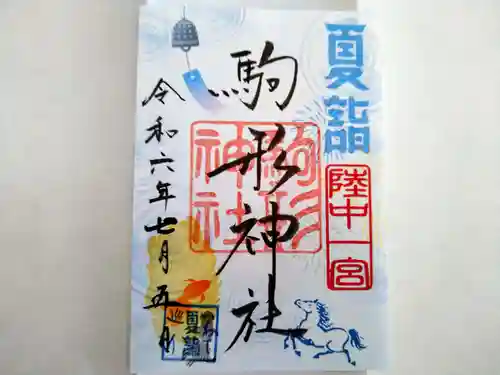 夏詣
陸中一宮
駒形神社
駒形神社
令和六年七月五日
夏詣
巡